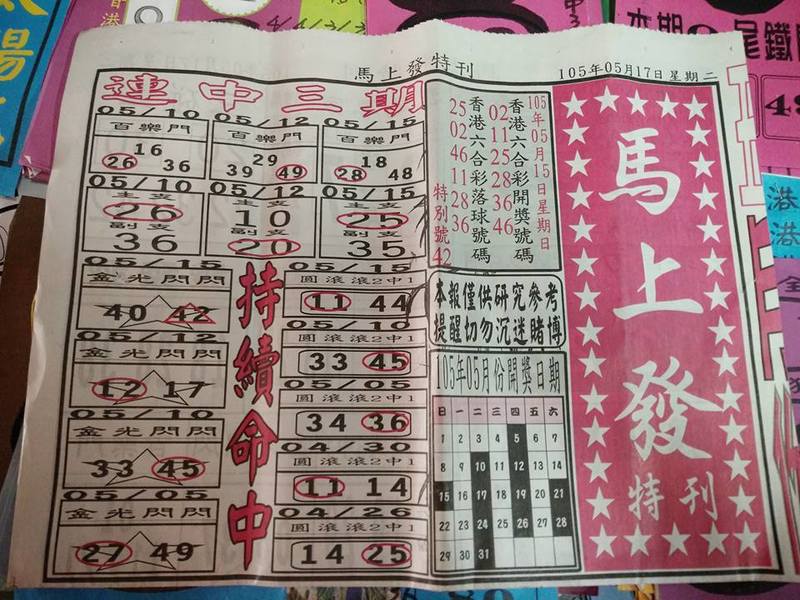 馬上發特刊
105年05月17日星期二
連中三期
05/10 05/12 05/15
百樂門 百樂門 百樂門
16 29 18
26 36 39 49 28 48
05/10 05/12 05/15
主支 主支 主支
26 10 25
副支 副支 副支
36 20 35
05/15
金光閃閃
40 42
05/12
金光閃閃
12 17
05/10
金光閃閃
33 45
05/05
金光閃閃
27 49
持續命中
05/15
圓滾滾2中1
11 44
05/10
圓滾滾2中1
33 45
05/05
圓滾滾2中1
34 36
04/30
圓滾滾2中1
11 14
04/26
圓滾滾2中1
14 25
105年05月15日星期日
香港六合彩開獎號碼
02 11 25 28 36 46
香港六合彩落球號碼
25 02 46 11 28 36
特別號 42
本報僅供研究參考
提醒切勿沉迷賭博
105年05月份開獎日期
日 一 二 三 四 五 六
1 2 3 4 5 6 7
8 9 10 11 12 13 14
15 16 17 18 19 20 21
22 23 24 25 26 27 28
29 30 31
馬上發
特刊
本期
尾鐵
香港
港